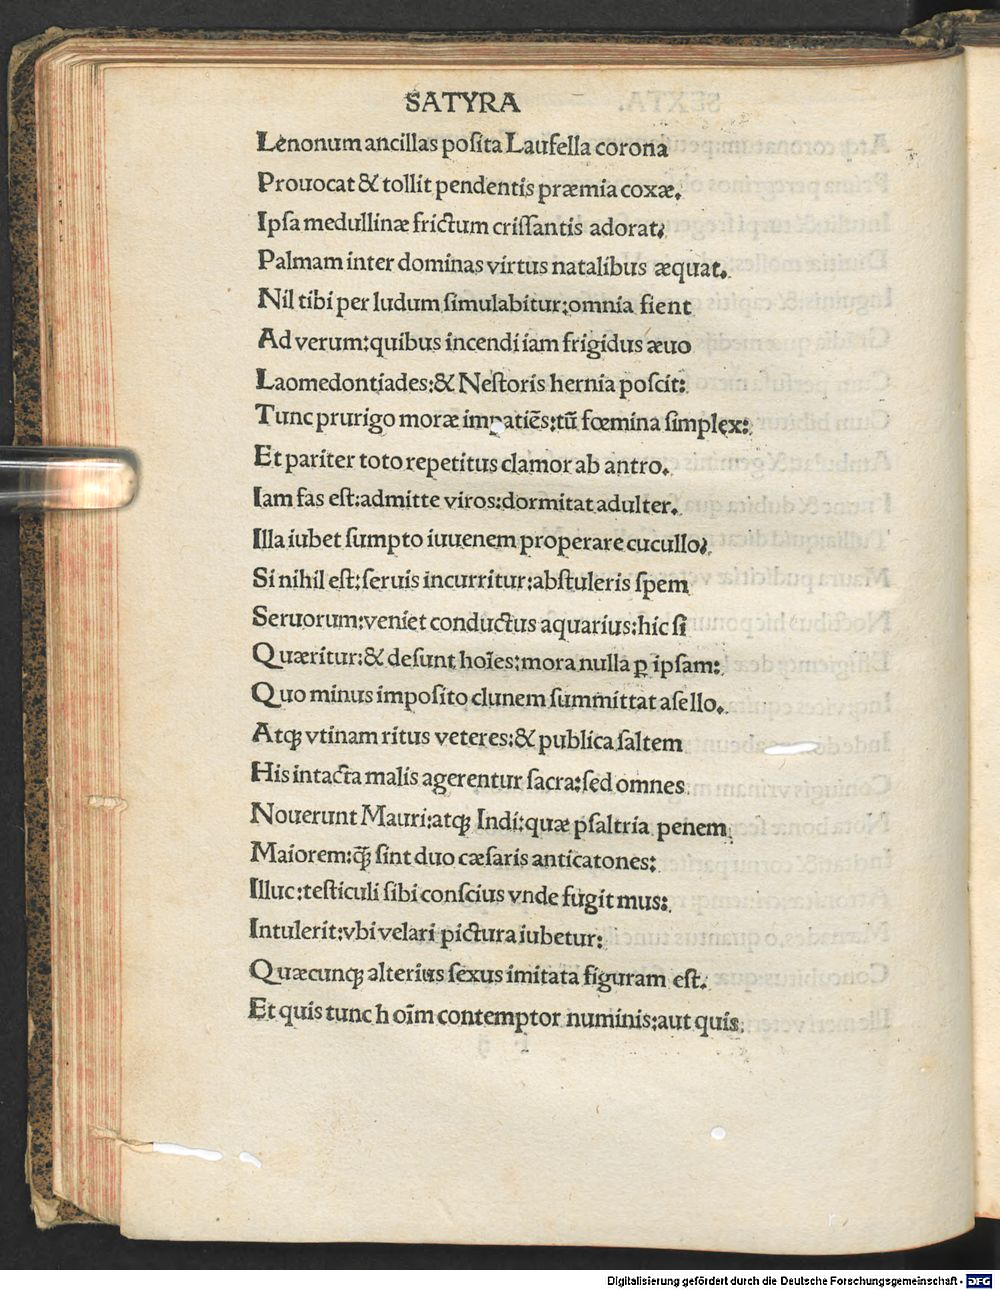 SATYRA
Lenonum ancillas poſita Laufella corona
Prouocat & tollit pendentis præmia coxæ.
Ipſa medullinæ frictum criſſantis adorat;
Palmam inter dominas virtus natalibus æquat.
Nil tibi per ludum ſimulabitur:omnia fient
Ad verum:quibus incendi iam frigidus æuo
Laomedontiades:& Neſtoris hernia poſcit:
Tunc prurigo moræ impatiēs:tū fœmina ſimplex:
Et pariter toto repetitus clamor ab antro.
Iam fas eſt:admitte viros:dormitat adulter.
Illa iubet ſumpto iuuenem properare cucullo;
Si nihil eſt:ſeruis incurritur:abſtuleris ſpem
Seruorum:veniet conductus aquarius:hic ſi
Quæritur:& deſunt hoīes:mora nulla ꝑ ipſam:
Quo minus impoſito clunem ſummittat aſello.
Atqꝫ vtinam ritus veteres:& publica ſaltem
His intacta malis agerentur ſacra:ſed omnes
Nouerunt Mauri:atqꝫ Indi:quæ pſaltria penem
Maiorem:qꝫ̄ ſint duo cæſaris anticatones:
Illuc:teſticuli ſibi conſcius vnde fugit mus:
Intulerit:vbi velari pictura iubetur:
Quæcunqꝫ alterius ſexus imitata figuram eſt.
Et quis tunc hoīm contemptor numinis:aut quis
Digitalisierung gefördert durch die Deutsche Forschungsgemeinschaft - DFG